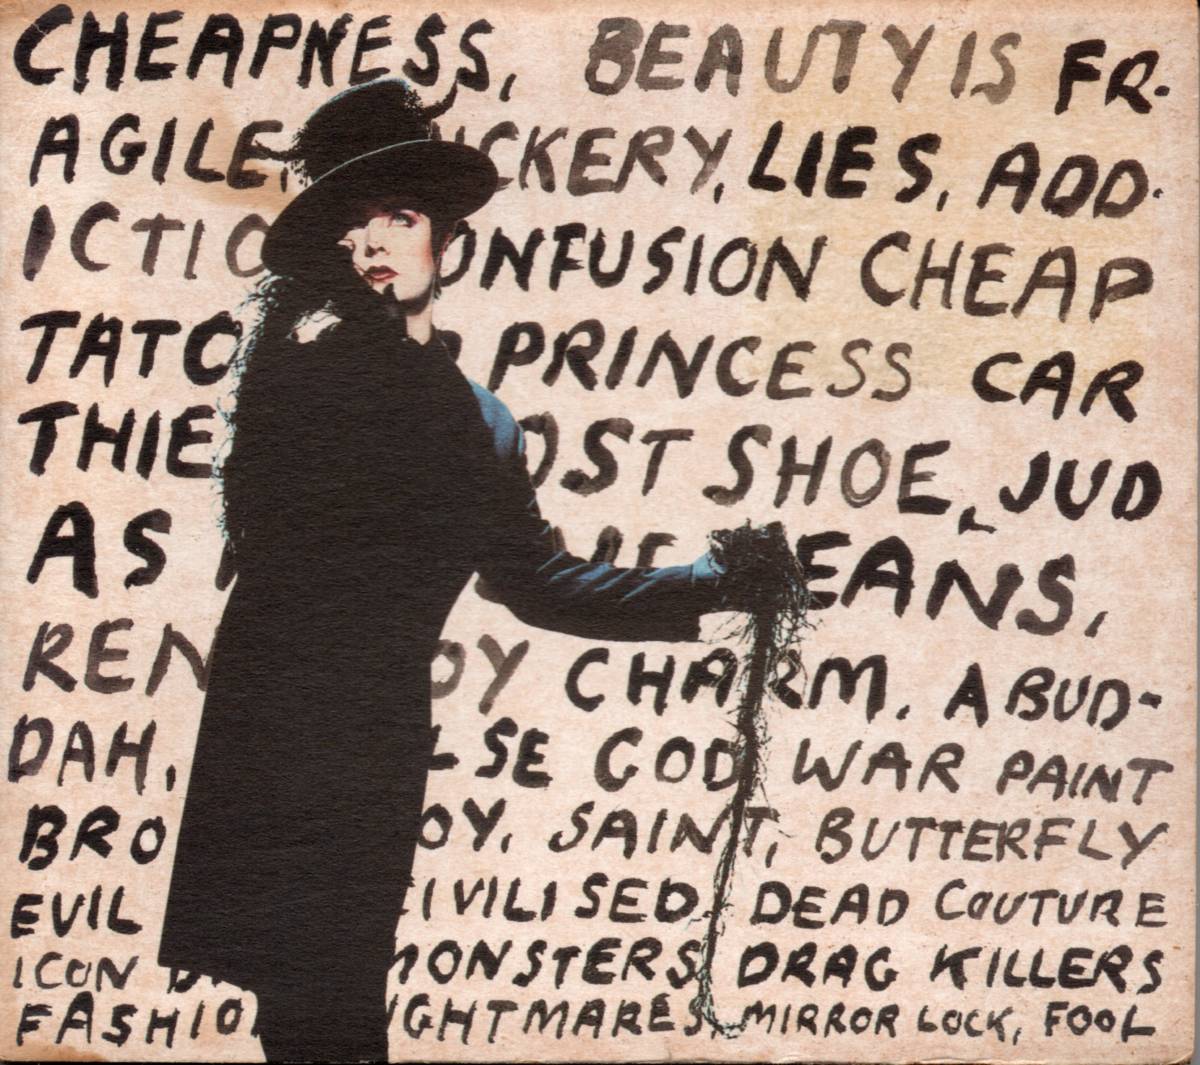 CHEAPNESS, BEAUTY IS FR-
AGILE, CKERY, LIES, ADD-
ICTIO ONFUSION CHEAP
TATO PRINCESS CAR
THIE OST SHOE, JUD
AS EANS,
REN OY CHARM. A BUD-
DAH, LSE GOD WAR PAINT
BRO OY, SAINT, BUTTERFLY
EVIL CIVILISED, DEAD COUTURE
ICON MONSTERS, DRAG KILLERS
FASHIO IGHTMARES, MIRROR LOCK, FOOL